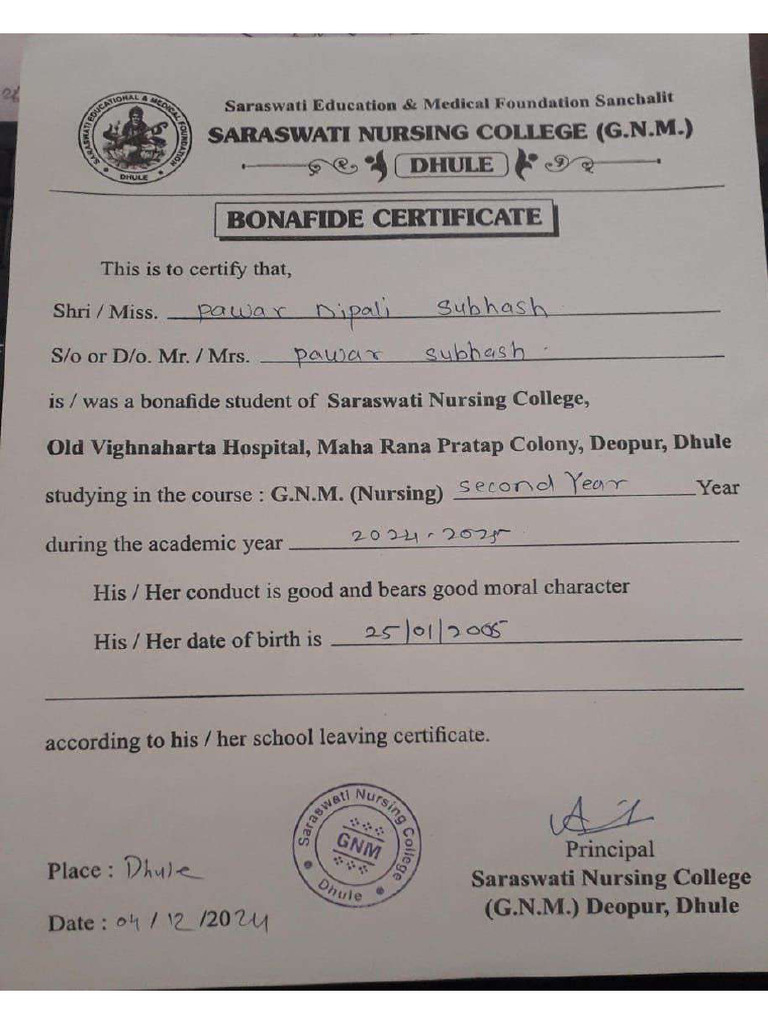 SARASWATI EDUCATIONAL & MEDICAL FOUNDATION
DHULE
Saraswati Education & Medical Foundation Sanchalit
SARASWATI NURSING COLLEGE (G.N.M.)
DHULE
BONAFIDE CERTIFICATE
This is to certify that,
Shri / Miss. Pawar Dipali Subhash
S/o or D/o. Mr. / Mrs. Pawar Subhash.
is / was a bonafide student of Saraswati Nursing College,
Old Vighnaharta Hospital, Maha Rana Pratap Colony, Deopur, Dhule
studying in the course : G.N.M. (Nursing) Second Year Year
during the academic year 2024-2025
His / Her conduct is good and bears good moral character
His / Her date of birth is 25/01/2005
according to his / her school leaving certificate.
Saraswati Nursing College
GNM
Dhule
Principal
Saraswati Nursing College
(G.N.M.) Deopur, Dhule
Place : Dhule
Date : 04/12/2024